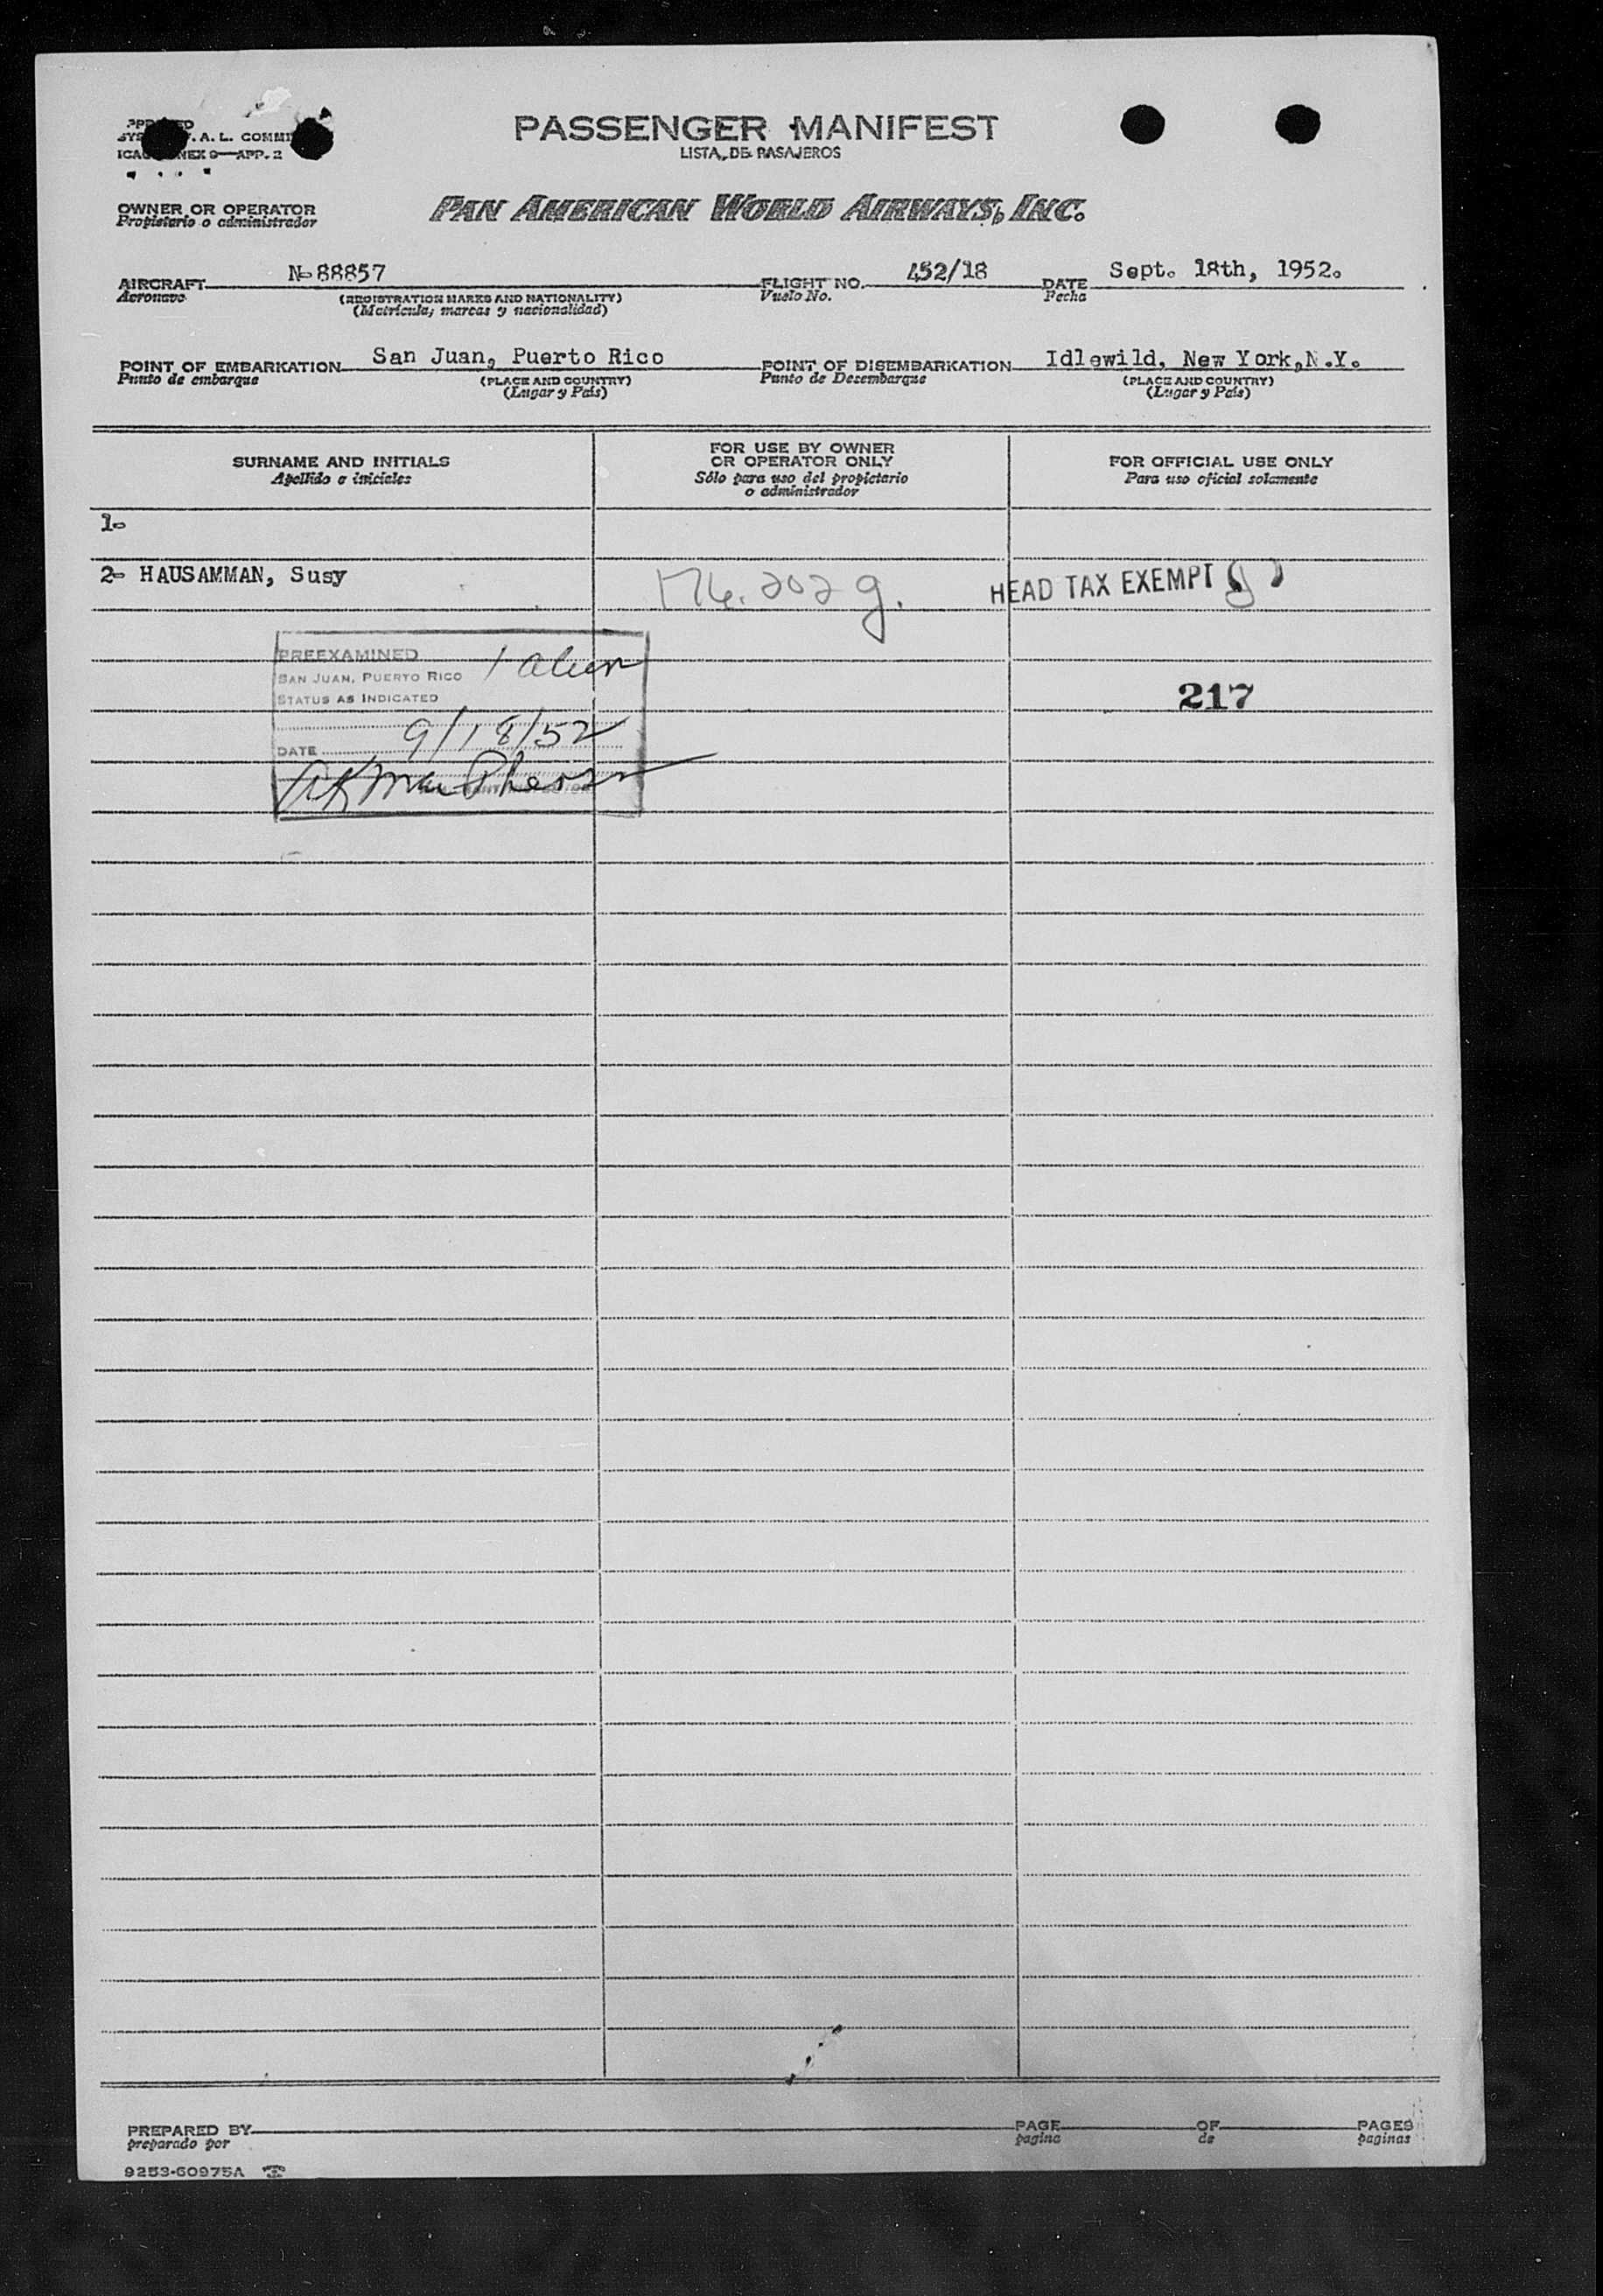 PASSENGER MANIFEST
LISTA DE PASAJEROS
A. L.
APP. 2
OWNER OR OPERATOR
Propietario o administrador
PAN AMERICAN WORLD AIRWAYS, INC.
AIRCRAFT N-88857 FLIGHT NO. 452/18 DATE Sept. 18th, 1952.
Aeronave (REGISTRATION MARKS AND NATIONALITY) Vuelo No. Fecha
(Matrícula, marcas y nacionalidad)
POINT OF EMBARKATION San Juan, Puerto Rico POINT OF DISEMBARKATION Idlewild, New York,N.Y.
Punto de embarque (PLACE AND COUNTRY) Punto de Desembarque (PLACE AND COUNTRY)
(Lugar y País) (Lugar y País)
SURNAME AND INITIALS
Apellido e iniciales
FOR USE BY OWNER
OR OPERATOR ONLY
Sólo para uso del propietario
o administrador
FOR OFFICIAL USE ONLY
Para uso oficial solamente
1-
2- HAUSAMMAN, Susy HEAD TAX EXEMPT
PREEXAMINED 1 alien
SAN JUAN, PUERTO RICO
STATUS AS INDICATED
217
DATE 9/18/52
PREPARED BY PAGE OF PAGES
preparado por pagina de paginas
9253-60975A